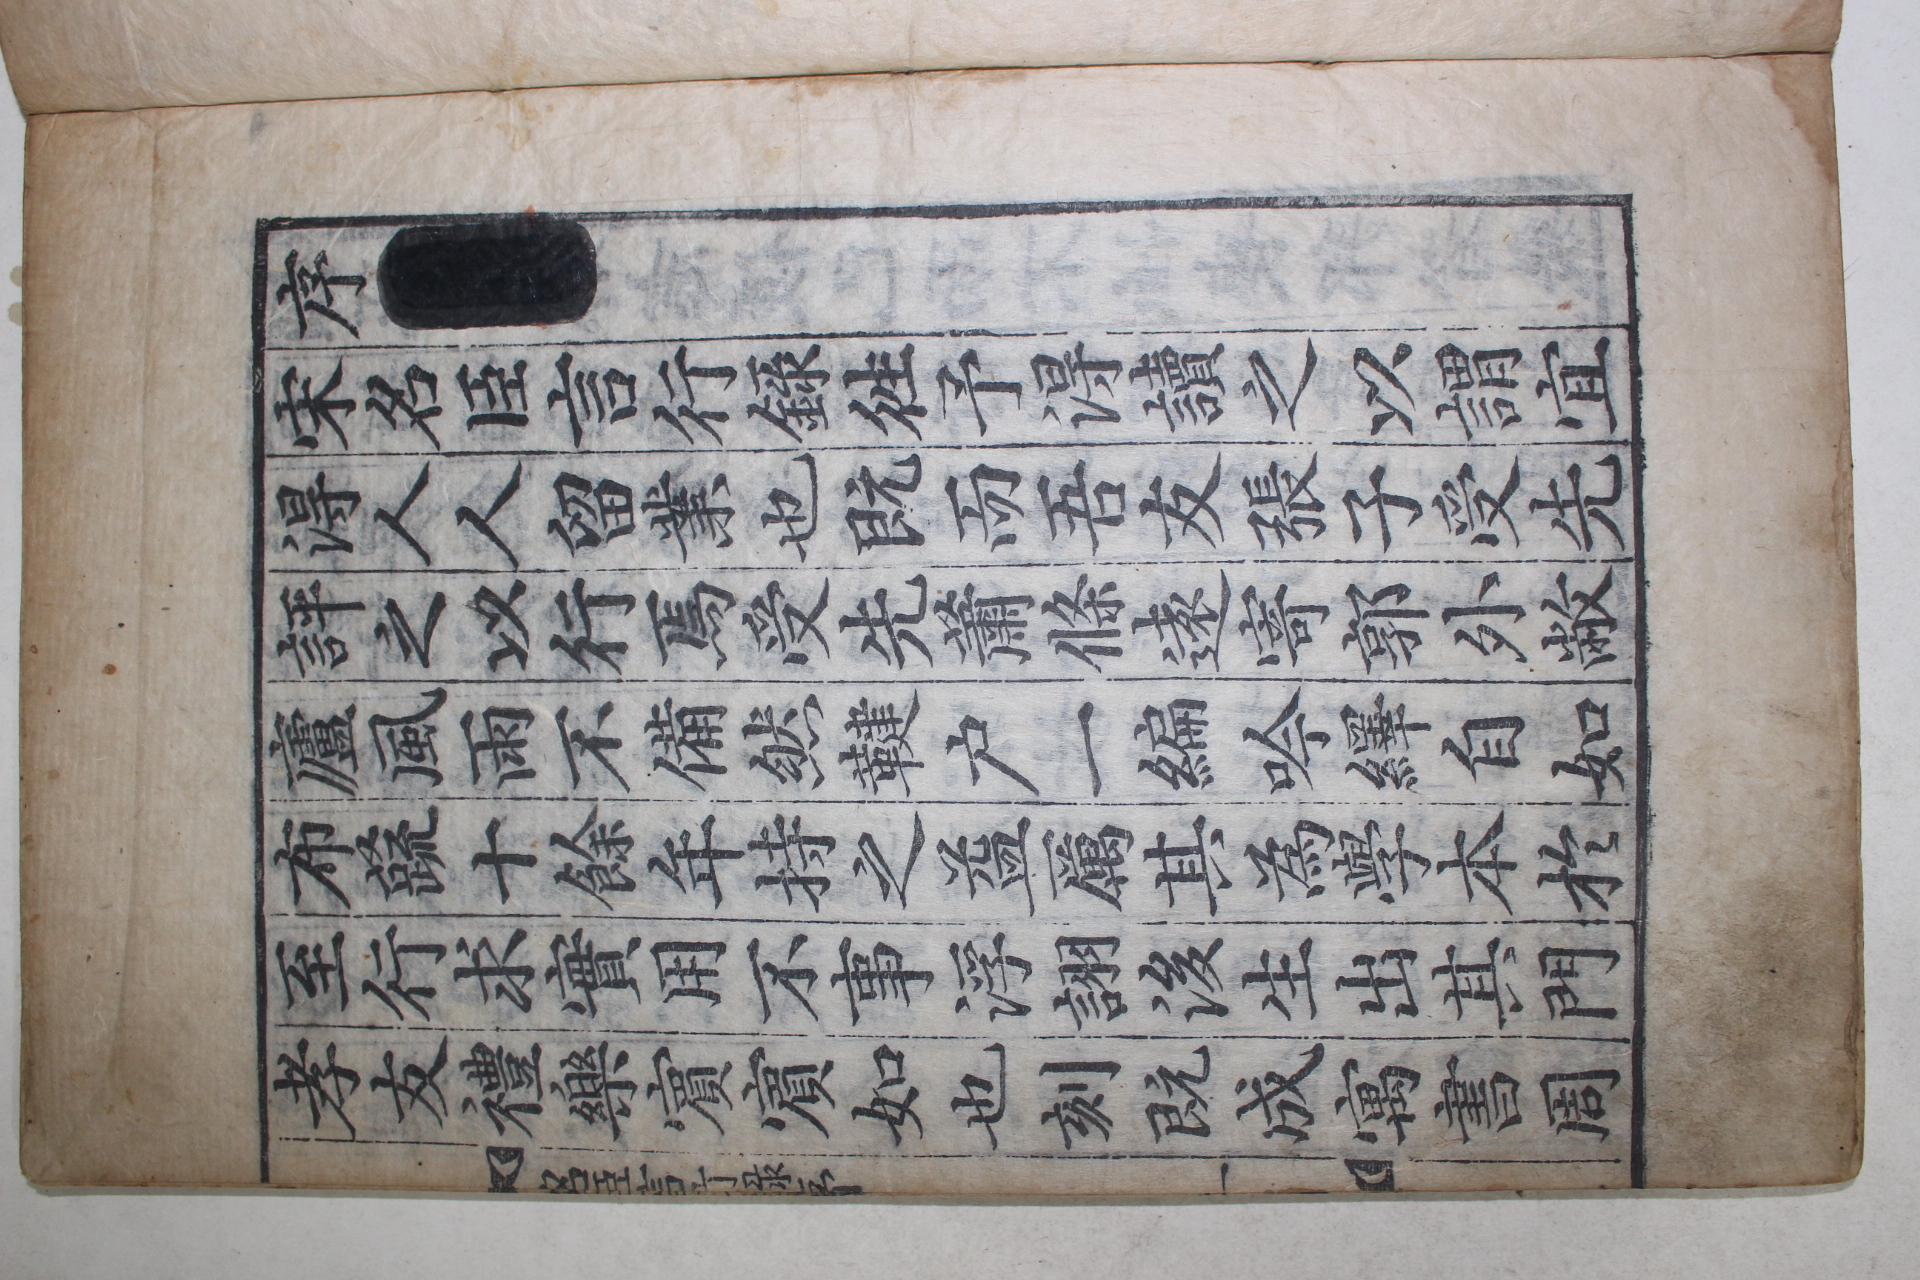 序
宋名臣言行錄徃予得讀之以謂宜
得人人留業也旣而吾友張子受先
評之以行焉受先蕭條遠寄郭外敝
廬風雨不備然户一編吟繹自如
布蔬十餘年持之益厲其爲學本於
至行求實用不事浮詡後生出其門
孝友禮樂賓賓如也刻旣成寓書周
名臣言行錄序 一